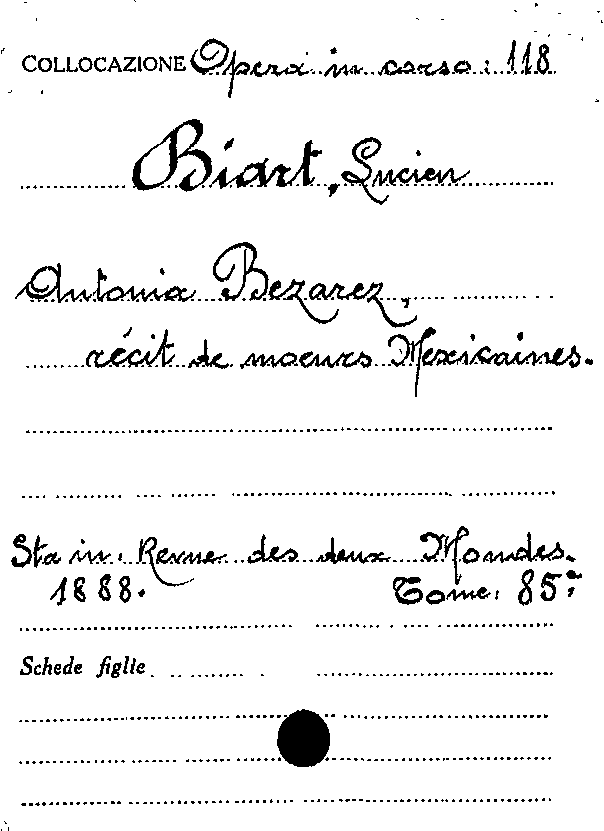 COLLOCAZIONE Opera in corso: 118
Biart, Lucien
Antonia Bezarez,
récit de moeurs Mexicaines.
Sta in: Revue des deux Mondes.
1888. Tome: 85º
Schede figlie